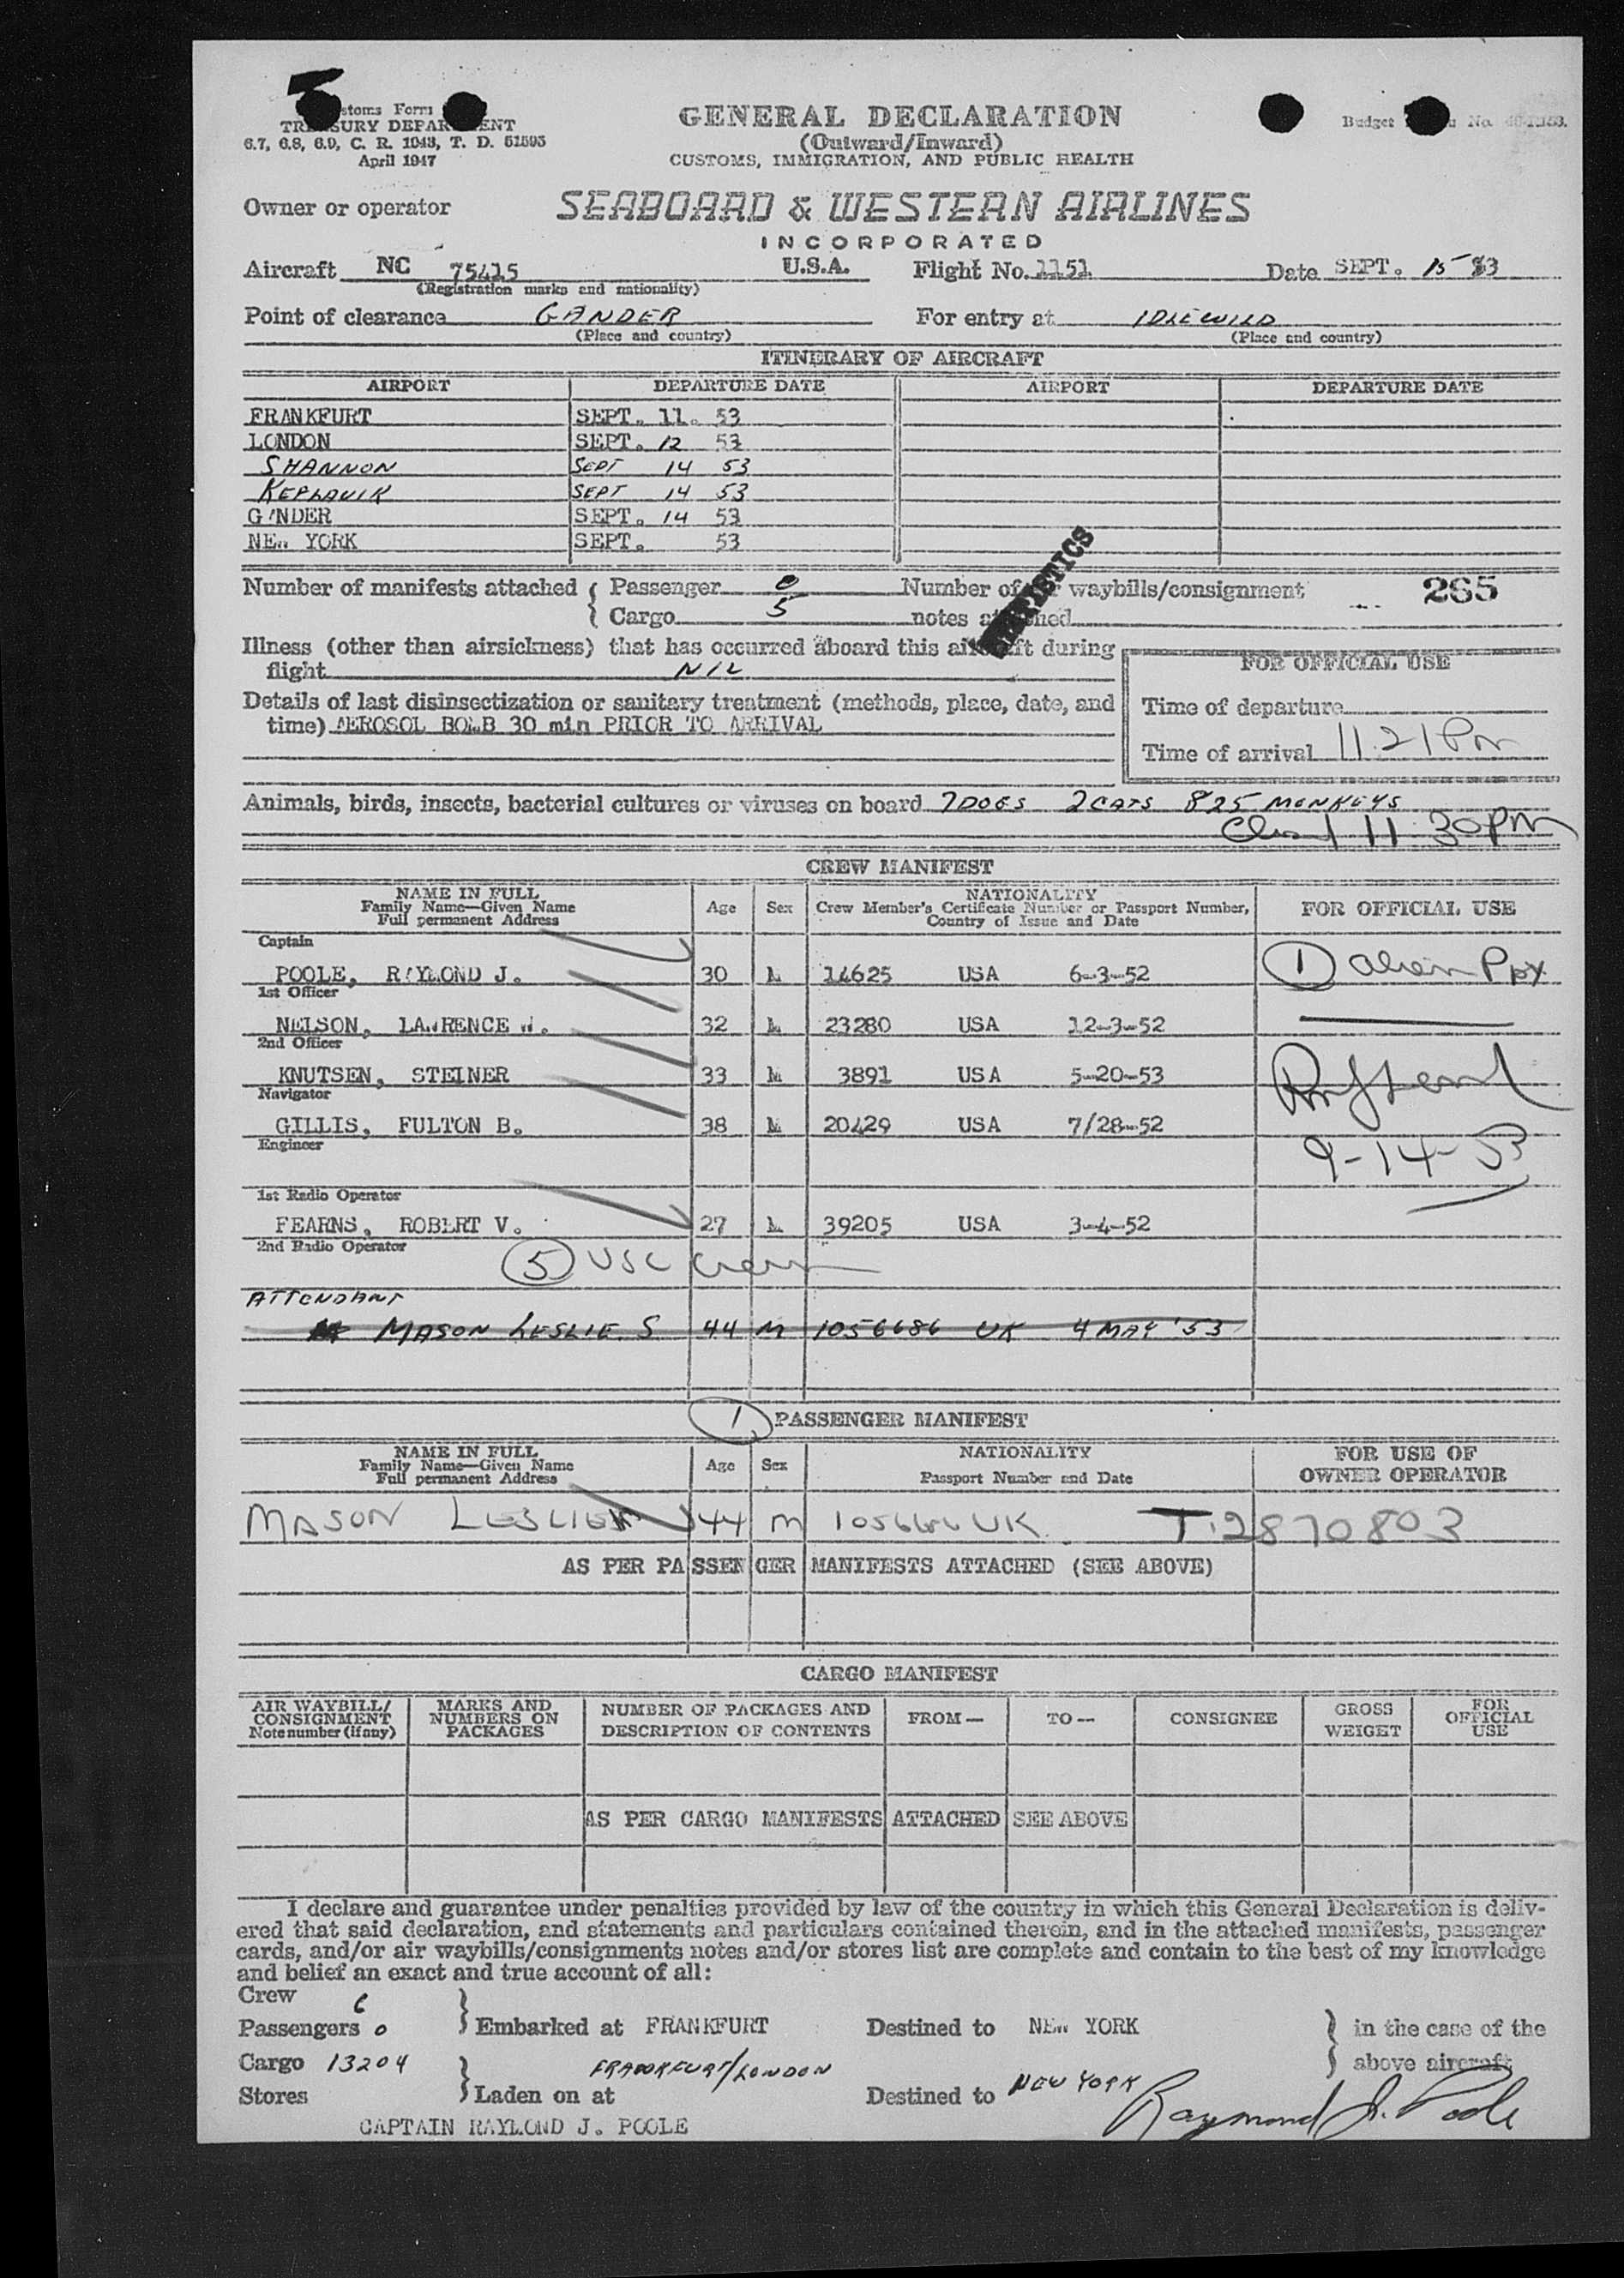 stoms Form
TREASURY DEPARTMENT
6.7, 6.8, 6.9, C. R. 1043, T. D. 51593
April 1947
GENERAL DECLARATION
(Outward/Inward)
CUSTOMS, IMMIGRATION, AND PUBLIC HEALTH
Budget No.
Owner or operator SEABOARD & WESTERN AIRLINES
INCORPORATED
Aircraft NC 75415 U.S.A. Flight No. 1151 Date SEPT. 15 53
(Registration marks and nationality)
Point of clearance GANDER For entry at IDLEWILD
(Place and country) (Place and country)
ITINERARY OF AIRCRAFT
AIRPORT DEPARTURE DATE AIRPORT DEPARTURE DATE
FRANKFURT SEPT. 11. 53
LONDON SEPT. 12 53
SHANNON SEPT 14 53
KEFLAVIK SEPT 14 53
GANDER SEPT. 14 53
NEW YORK SEPT. 53
Number of manifests attached { Passenger 0 Number of waybills/consignment 265
Cargo 5 notes attached
Illness (other than airsickness) that has occurred aboard this aircraft during
flight NIL
FOR OFFICIAL USE
Details of last disinsectization or sanitary treatment (methods, place, date, and
time) AEROSOL BOMB 30 min PRIOR TO ARRIVAL
Time of departure
Time of arrival 11.21 Pm
Animals, birds, insects, bacterial cultures or viruses on board 7 DOGS 2 CATS 825 MONKEYS
11:30 PM
CREW MANIFEST
NAME IN FULL
Family Name—Given Name
Full permanent Address
Age Sex
NATIONALITY
Crew Member's Certificate Number or Passport Number,
Country of Issue and Date
FOR OFFICIAL USE
Captain
POOLE, RAYMOND J. 30 M 14625 USA 6-3-52
1 alien Ppx
1st Officer
NELSON, LAWRENCE W. 32 M 23280 USA 12-3-52
2nd Officer
KNUTSEN, STEINER 33 M 3891 USA 5-20-53
Navigator
GILLIS, FULTON B. 38 M 20429 USA 7/28-52
Engineer
9-14-53
1st Radio Operator
FEARNS, ROBERT V. 27 M 39205 USA 3-4-52
2nd Radio Operator
5 USC Crew
ATTENDANT
MASON LESLIE. S 44 M 1056686 UK 4 MAY '53
1 PASSENGER MANIFEST
NAME IN FULL
Family Name—Given Name
Full permanent Address
Age Sex
NATIONALITY
Passport Number and Date
FOR USE OF
OWNER OPERATOR
MASON LESLIE 44 M 1056686 UK T.2870803
AS PER PASSENGER MANIFESTS ATTACHED (SEE ABOVE)
CARGO MANIFEST
AIR WAYBILL/
CONSIGNMENT
Note number (if any)
MARKS AND
NUMBERS ON
PACKAGES
NUMBER OF PACKAGES AND
DESCRIPTION OF CONTENTS
FROM—
TO—
CONSIGNEE
GROSS
WEIGHT
FOR
OFFICIAL
USE
AS PER CARGO MANIFESTS ATTACHED SEE ABOVE
I declare and guarantee under penalties provided by law of the country in which this General Declaration is deliv-
ered that said declaration, and statements and particulars contained therein, and in the attached manifests, passenger
cards, and/or air waybills/consignments notes and/or stores list are complete and contain to the best of my knowledge
and belief an exact and true account of all:
Crew 6
Passengers 0 } Embarked at FRANKFURT Destined to NEW YORK } in the case of the
Cargo 13204 } FRANKFURT/LONDON above aircraft
Stores Laden on at Destined to NEW YORK
CAPTAIN RAYMOND J. POOLE Raymond J. Poole